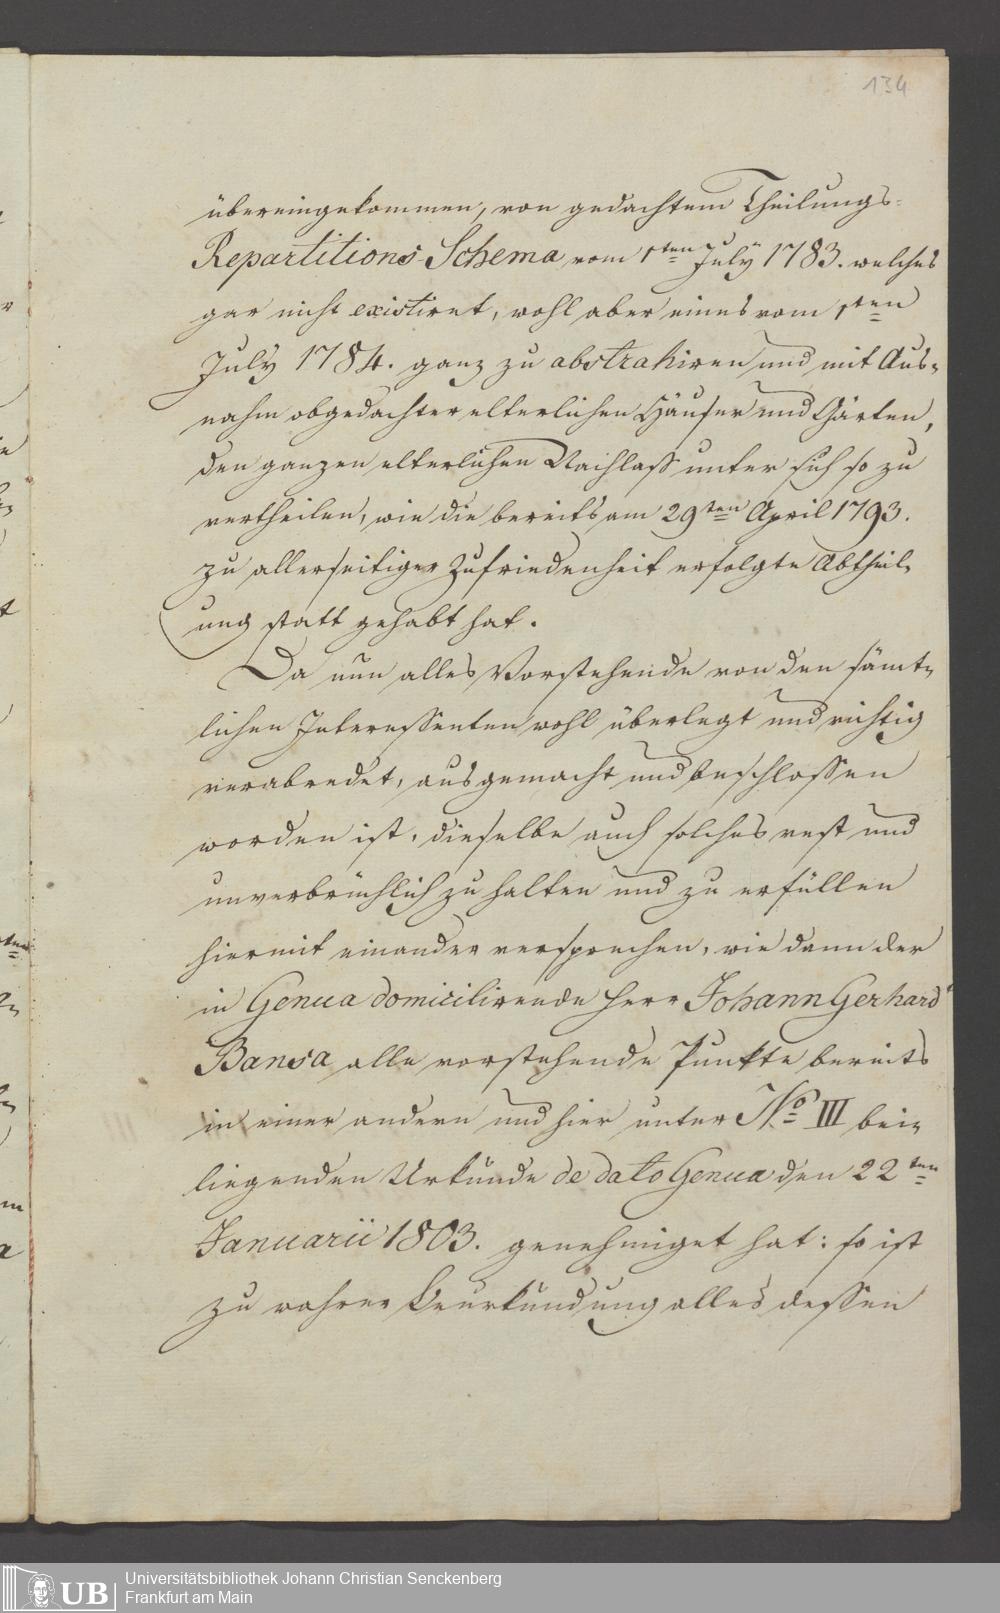 134
übereingekommen, von gedachtem Theilungs-
Repartitions-Schema vom 1ten July 1783. welches
gar nicht existiret, wohl aber eines vom 1ten
July 1784. ganz zu abstrahiren und mit Aus-
nahm obgedachter elterlichen Häuser und Gärten,
den ganzen elterlichen Nachlass unter sich so zu
vertheilen, wie die bereits am 29ten April 1793.
zu allerseitiger Zufriedenheit erfolgte Abtheil-
ung statt gehabt hat.
Da nun alles Vorstehende von den sämt-
lichen Interessenten wohl überlegt und richtig
verabredet, ausgemacht und beschlossen
worden ist, dieselbe auch solches vest und
unverbrüchlich zu halten und zu erfüllen
hiermit einander versprechen, wie dann der
in Genua domicilirende Herr Johann Gerhard
Bansa alle vorstehende Punkte bereits
in einer andern und hier unter No III bei-
liegenden Urkunde de dato Genua den 22ten
Januarii 1803. genehmiget hat: so ist
zu wahrer Beurkundung alles dessen
UB
Universitätsbibliothek Johann Christian Senckenberg
Frankfurt am Main